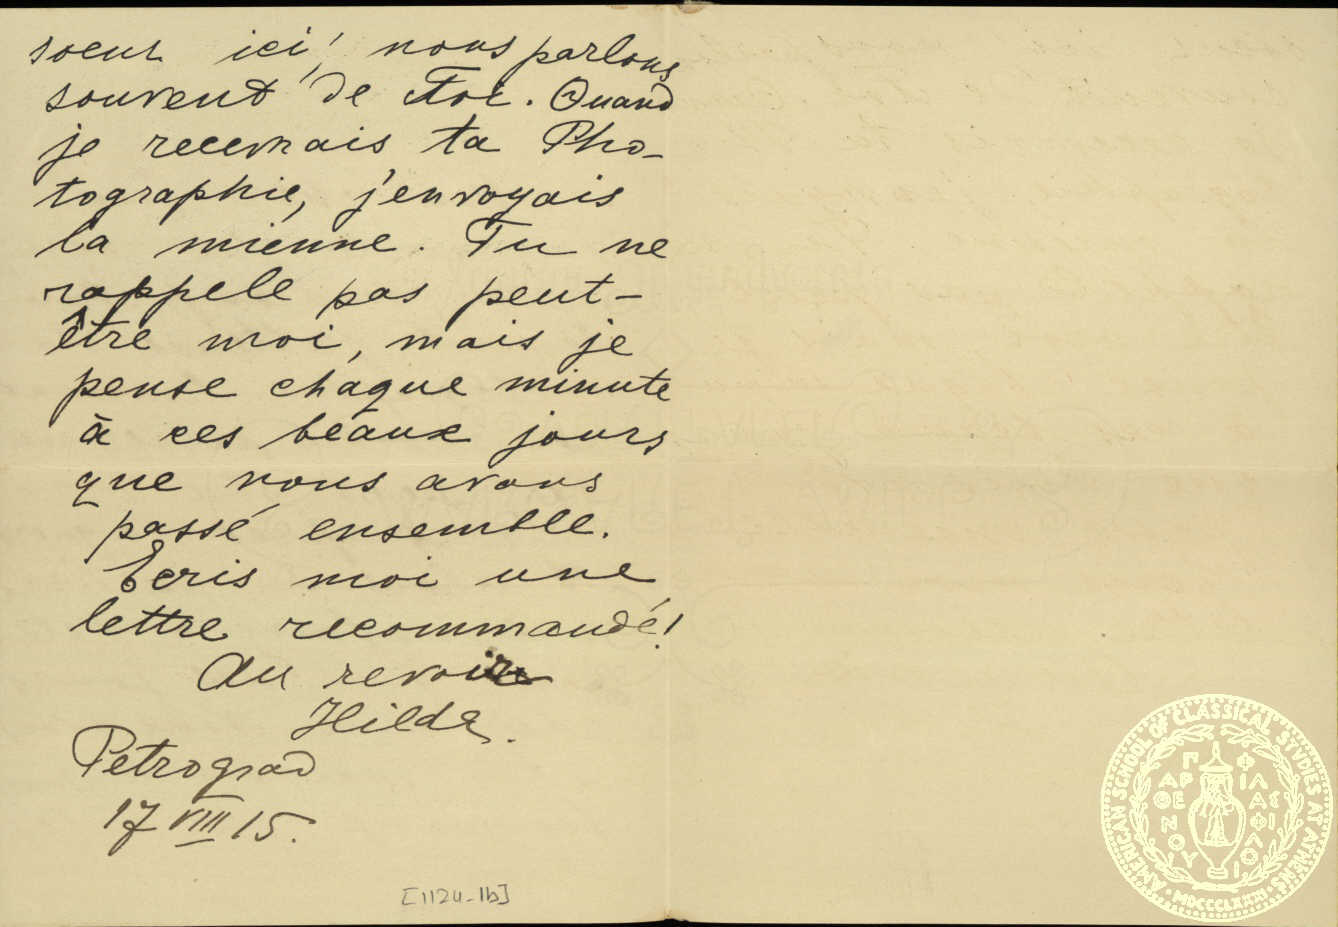 soeur ici, nous parlons
souvent de Toi. Quand
je recevrais ta Pho-
tographie, j'envoyais
la mienne. Tu ne
rappele pas peut-
être moi, mais je
pense chaque minute
à ces beaux jours
que nous avons
passé ensemble.
Ecris moi une
lettre recommandé!
Au revoir
Hilda.
Petrograd
17 VIII 15.
[1124-1b]
AMERICAN SCHOOL OF CLASSICAL STUDIES AT ATHENS
MDCCCLXXXI
ΠΑΡΘΕΝΟΥ ΦΙΛΑΣ ΦΙΛΟΙ